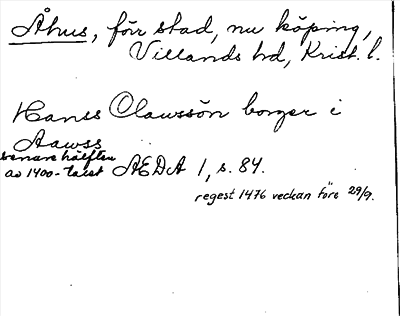 Åhus, förr stad, nu köping,
Villands hd, Krist. l.
Hanss Olawssön borger i
Aawss
senare hälften
av 1400-talet ÆDA 1, s. 84.
regest 1476 veckan före 29/9.